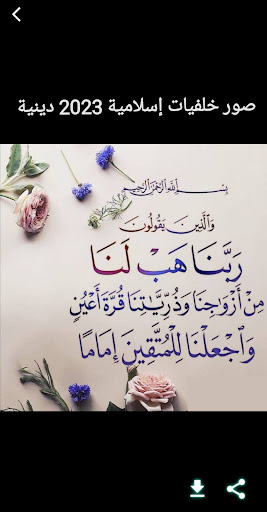 صور خلفيات إسلامية 2023 دينية
بسم الله الرحمن الرحيم
وَالَّذِينَ يَقُولُونَ
رَبَّنَا هَبْ لَنَا
مِنْ أَزْوَٰجِنَا وَذُرِّيَّٰتِنَا قُرَّةَ أَعْيُنٍ
وَٱجْعَلْنَا لِلْمُتَّقِينَ إِمَامًا